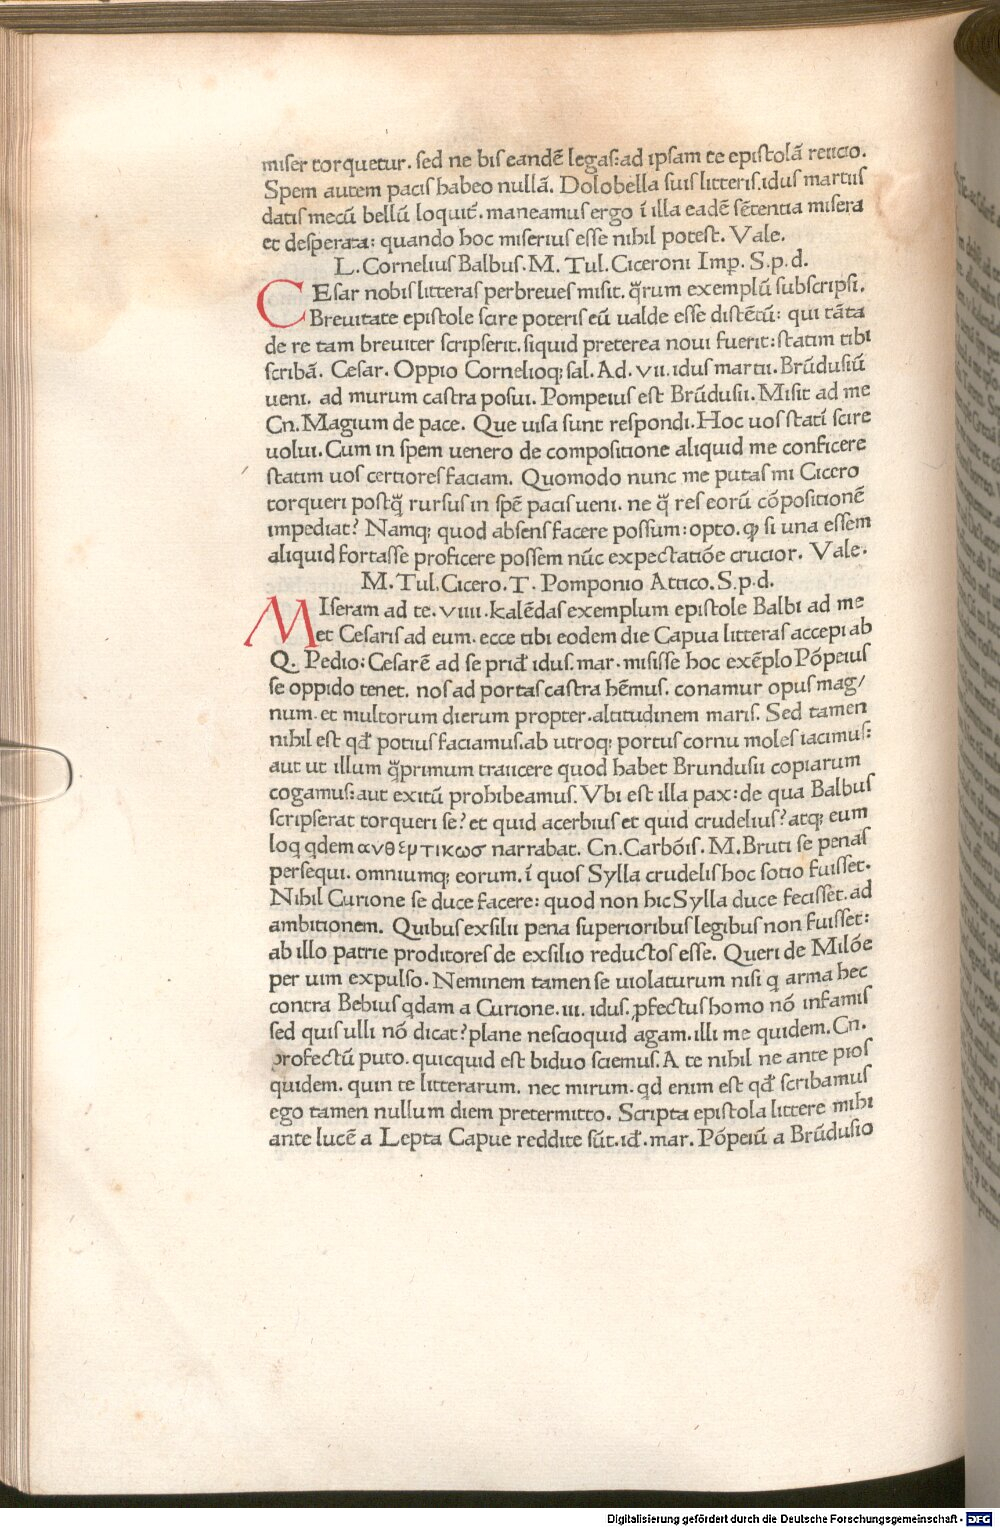 miſer torquetur. ſed ne biſ eandē legaſ: ad ipſam te epiſtolā reiicio.
Spem autem paciſ habeo nullā. Dolobella ſuiſ litteriſ. iduſ martiiſ
datiſ mecū bellū loquit̄. maneamuſ ergo ī illa eadē ſētentia miſera
et deſperata: quando hoc miſeriuſ eſſe nihil poteſt. Vale.
L. Corneliuſ Balbuſ. M. Tul. Ciceroni Imp. S. p. d.
CEſar nobiſ litteraſ perbreueſ miſit. q̄rum exemplū ſubſcripſi.
Breuitate epiſtole ſcire poteriſ eū ualde eſſe diſtētū: qui tāta
de re tam breuiter ſcripſerit. ſiquid preterea noui fuerit: ſtatim tibi
ſcribā. Ceſar. Oppio Cornelioq; ſal. Ad. vii. iduſ martii. Brūduſiū
ueni. ad murum caſtra poſui. Pompeiuſ eſt Brūduſii. Miſit ad me
Cn. Magium de pace. Que uiſa ſunt reſpondi. Hoc uoſ ſtatī ſcire
uolui. Cum in ſpem uenero de compoſitione aliquid me conficere
ſtatim uoſ certioreſ faciam. Quomodo nunc me putaſ mi Cicero
torqueri poſtq̄ rurſuſ in ſpē paciſ ueni. ne q̄ reſ eorū cōpoſitionē
impediat? Namq; quod abſenſ facere poſſum: opto. ꝙ ſi una eſſem
aliquid fortaſſe proficere poſſem nūc expectatiōe crucior. Vale.
M. Tul. Cicero. T. Pomponio Attico. S. p. d.
MIſeram ad te. viiii. kalēdaſ exemplum epiſtole Balbi ad me
et Ceſariſ ad eum. ecce tibi eodem die Capua litteraſ accepi ab
Q. Pedio: Ceſarē ad ſe prid̄ iduſ. mar. miſiſſe hoc exēplo Pōpeiuſ
ſe oppido tenet. noſ ad portaſ caſtra hēmuſ. conamur opuſ mag/
num. et multorum dierum propter. altitudinem mariſ. Sed tamen
nihil eſt qd̄ potiuſ faciamuſ. ab utroq; portuſ cornu moleſ iacimuſ:
aut ut illum q̄primum traiicere quod habet Brunduſii copiarum
cogamuſ: aut exitū prohibeamuſ. Vbi eſt illa pax: de qua Balbuſ
ſcripſerat torqueri ſe? et quid acerbiuſ et quid crudeliuſ? atq; eum
loq qdem ανθερτικωσ narrabat. Cn. Carbōiſ. M. Bruti ſe penaſ
perſequi. omniumq; eorum. ī quoſ Sylla crudeliſ hoc ſotio fuiſſet.
Nihil Curione ſe duce facere: quod non hic Sylla duce feciſſet. ad
ambitionem. Quibuſ exſilii pena ſuperioribuſ legibuſ non fuiſſet:
ab illo patrie proditoreſ de exſilio reductoſ eſſe. Queri de Milōe
per uim expulſo. Neminem tamen ſe uiolaturum niſi q arma hec
contra Bebiuſ qdam a Curione. iii. iduſ. ꝓfectuſ homo nō infamiſ
ſed quiſ ulli nō dicat? plane neſcioquid agam. illi me quidem. Cn.
profectū puto. quicquid eſt biduo ſciemuſ. A te nihil ne ante pioſ
quidem. quin te litterarum. nec mirum. qd enim eſt qd̄ ſcribamuſ
ego tamen nullum diem pretermitto. Scripta epiſtola littere mihi
ante lucē a Lepta Capue reddite ſūt. id̄. mar. Pōpeiū a Brūduſio
Digitalisierung gefördert durch die Deutsche Forschungsgemeinschaft - DFG